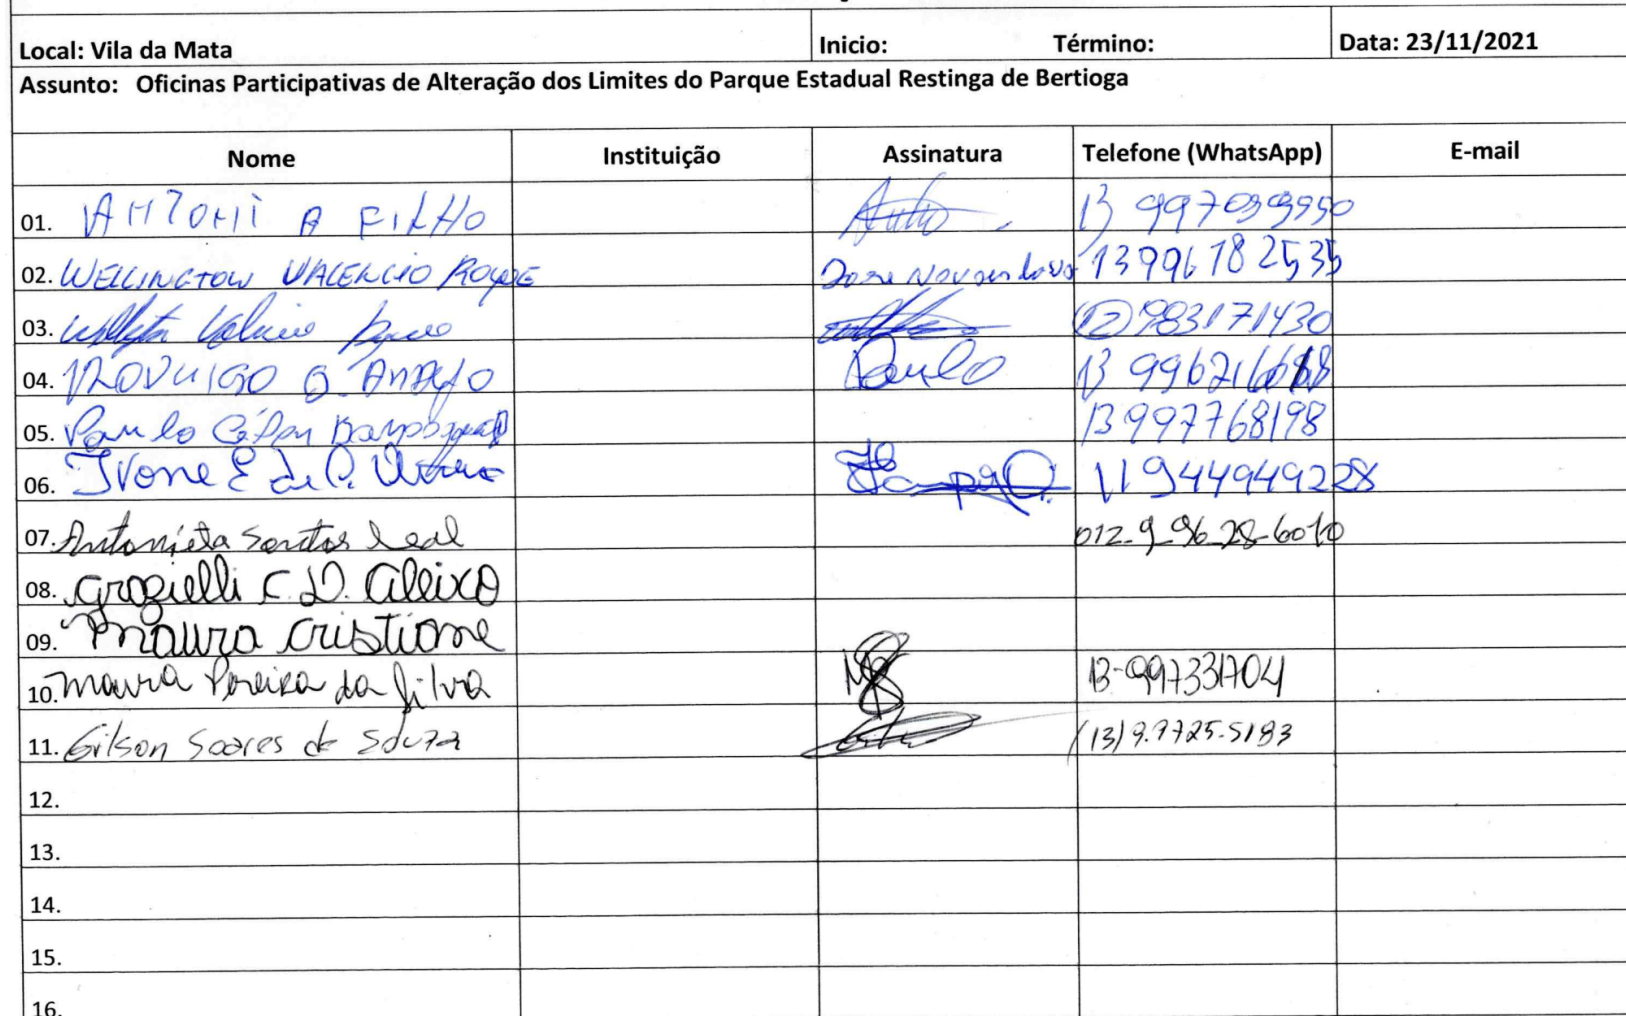 Local: Vila da Mata Inicio: Término: Data: 23/11/2021
Assunto: Oficinas Participativas de Alteração dos Limites do Parque Estadual Restinga de Bertioga
Nome Instituição Assinatura Telefone (WhatsApp) E-mail
01. A FILHO 13
02. WELLINGTOW VALENCIO ROQUE 13 99678 2535
03. (12) 983171430
04. Paulo 13
05. Paulo 13 997768198
06. Ivone E de 11 944949228
07. Antonieta Santos Leal 012-9-96-28-6010
08. Grazielli C. D. Aleixo
09. Maura Cristiane
10. Maura Pereira da Silva 13-997331704
11. Gilson Soares de Souza (13) 9.9725-5183
12.
13.
14.
15.
16.